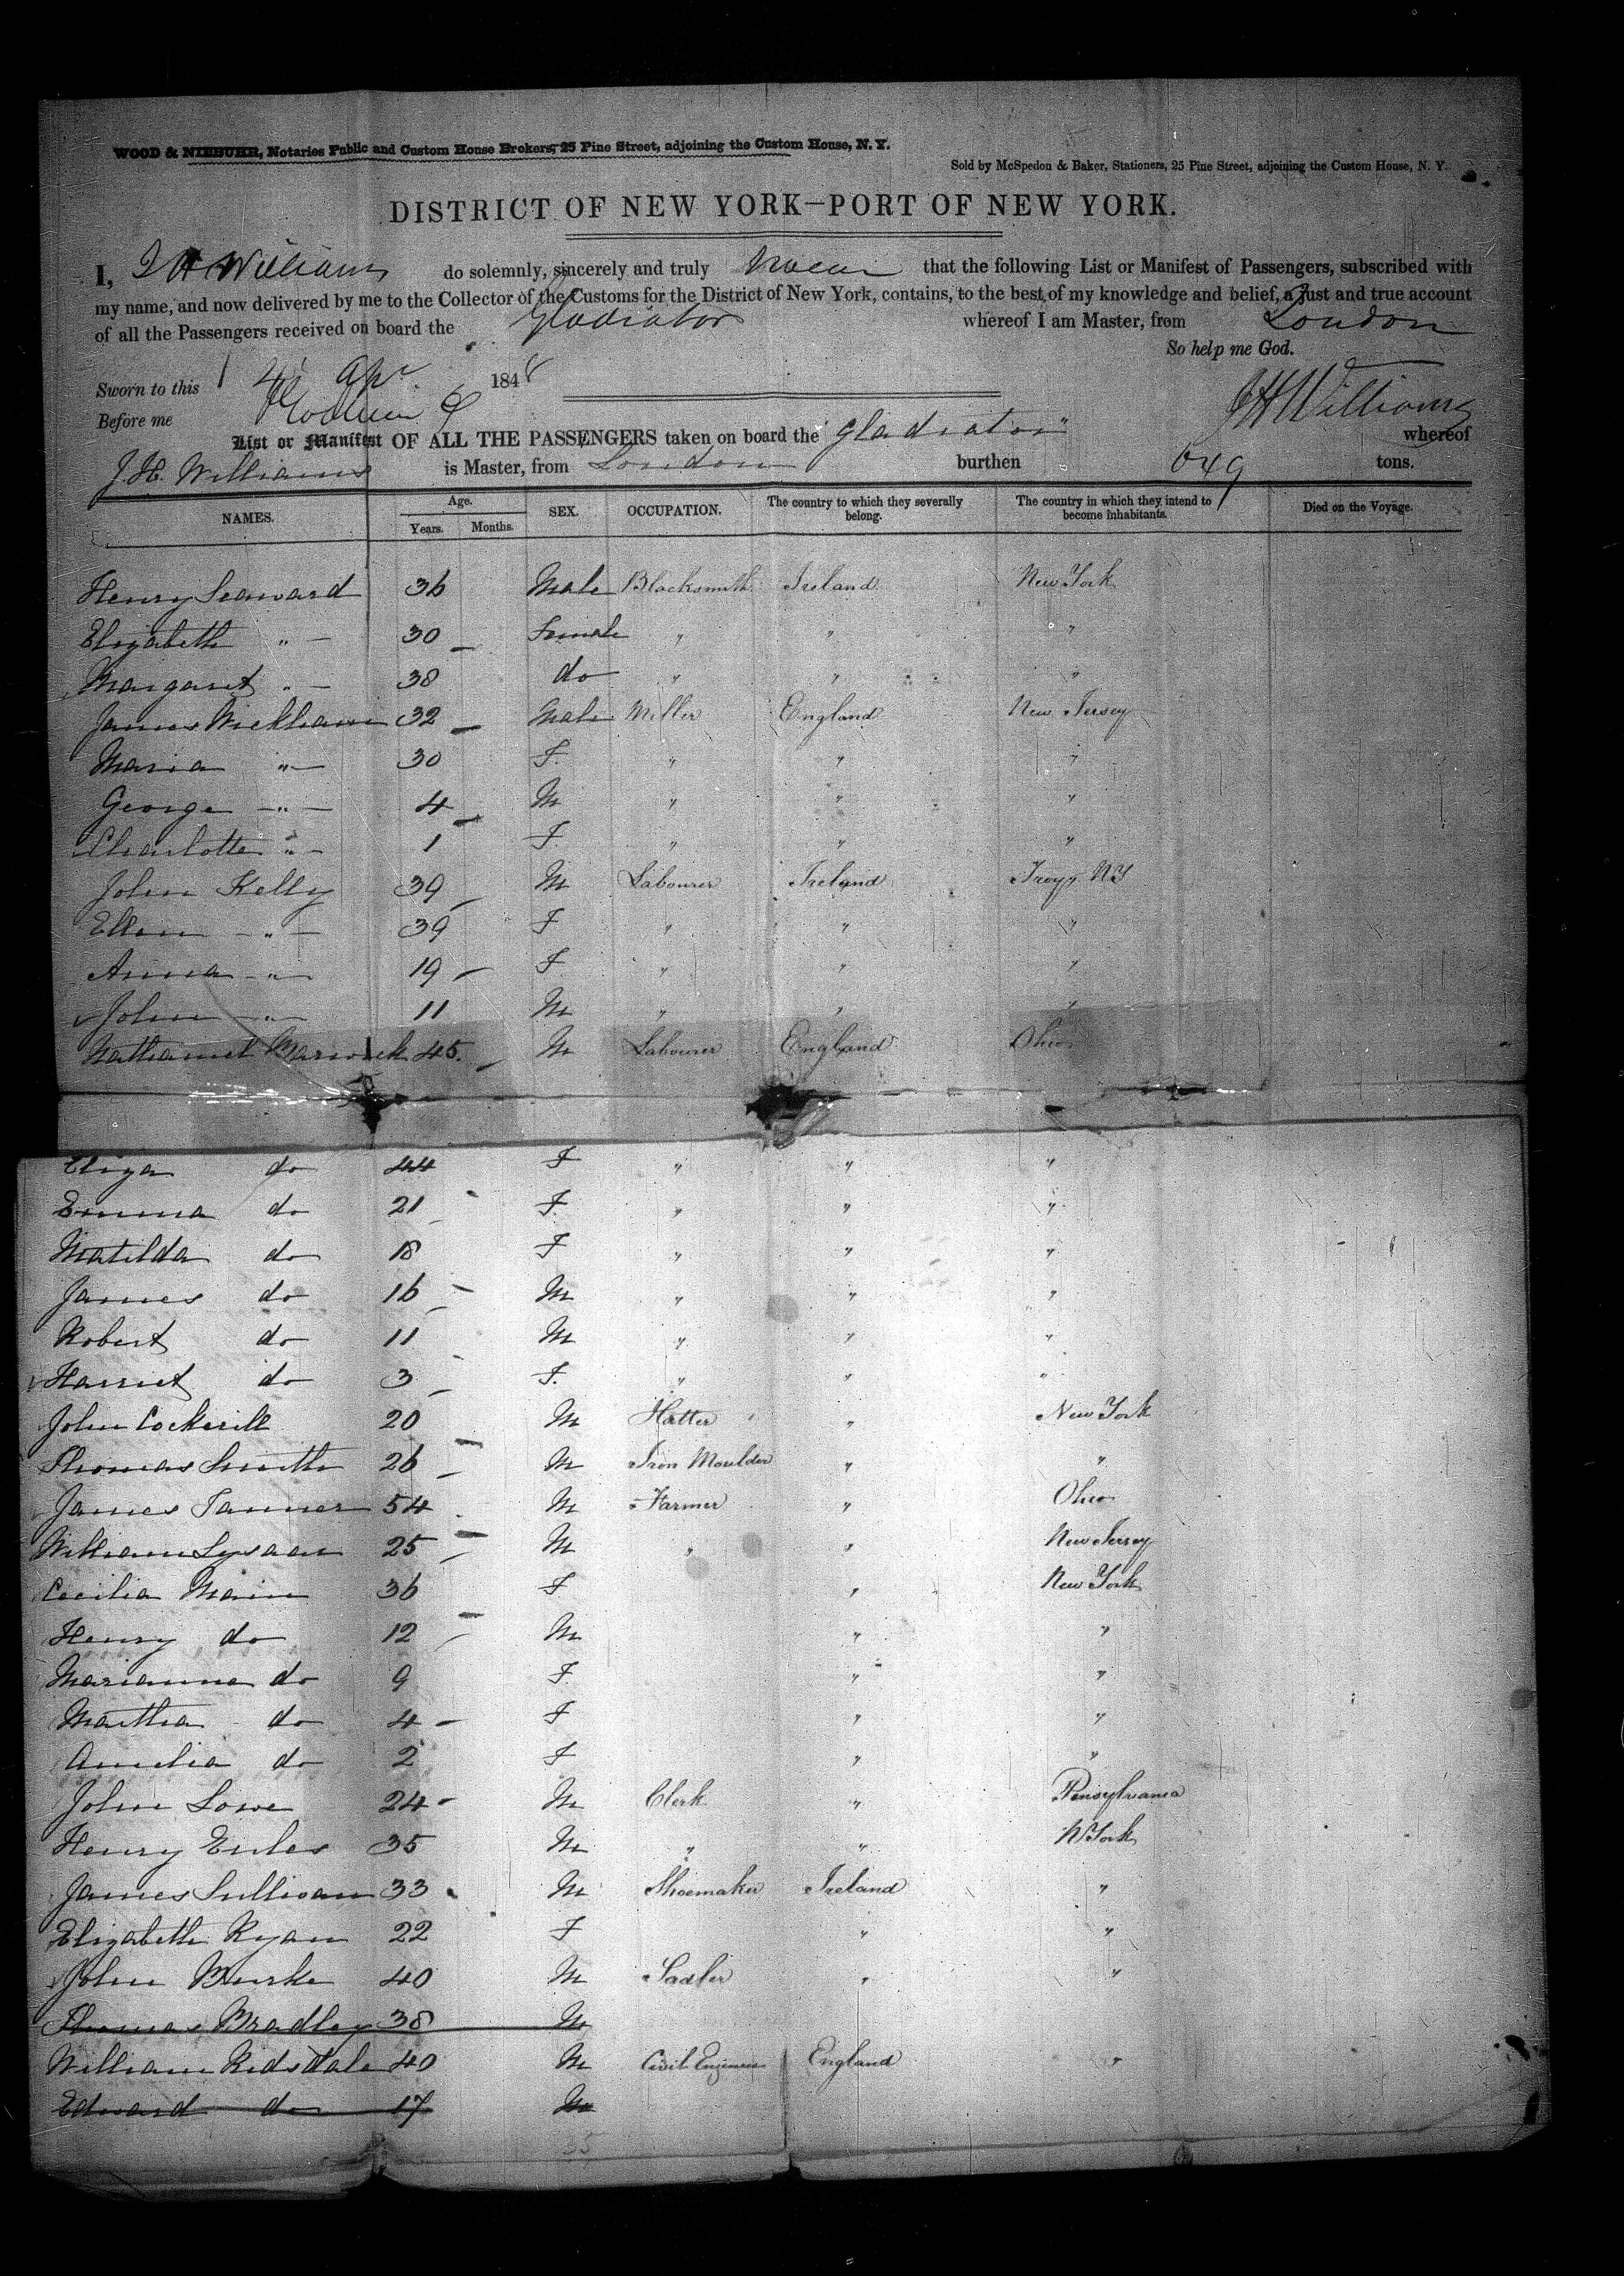 WOOD & NIEBUHR, Notaries Public and Custom House Brokers, 25 Pine Street, adjoining the Custom House, N. Y.
Sold by McSpedon & Baker, Stationers, 25 Pine Street, adjoining the Custom House, N. Y.
DISTRICT OF NEW YORK—PORT OF NEW YORK.
I, J H Williams do solemnly, sincerely and truly swear that the following List or Manifest of Passengers, subscribed with
my name, and now delivered by me to the Collector of the Customs for the District of New York, contains, to the best of my knowledge and belief, a just and true account
of all the Passengers received on board the Gladiator whereof I am Master, from London
So help me God.
Sworn to this Apr 1848
Before me
JH Williams
List or Manifest OF ALL THE PASSENGERS taken on board the "Gladiator" whereof
J.H. Williams is Master, from London burthen 649 tons.
NAMES. Age. Years. Months. SEX. OCCUPATION. The country to which they severally belong. The country in which they intend to become inhabitants. Died on the Voyage.
Henry Seaward 36 Male Blacksmith Ireland New York
Elizabeth " 30 Female " " "
Margaret " 38 do " " "
James Wickham 32 Male Miller England New Jersey
Maria " 30 F. " " "
George " 4 M " " "
Charlotte " 1 F. " " "
John Kelly 39 M Labourer Ireland Troy, NY
Ellen " 39 F " " "
Anna " 19 F. " " "
John " 11 M " " "
Nathaniel Barwick 45. M Labourer England Ohio
Eliza do 44 F " " "
Emma do 21 F. " " "
Matilda do 18 F " " "
James do 16 M " " "
Robert do 11 M " " "
Harriet do 3 F. " " "
John Cockerill 20 M Hatter " New York
Thomas Smith 26 M Iron Moulder " "
James Tanner 54 M Farmer " Ohio
William 25 M " " New Jersey
Cecilia Main 36 F " New York
Henry do 12 M " "
Marianna do 9 F. " "
Martha do 4 F " "
Amelia do 2 F " "
John Lowe 24 M Clerk " Pensylvania
Henry Eules 35 M " " N York
James Sullivan 33 M Shoemaker Ireland "
Elizabeth Ryan 22 F " "
John Burke 40 M Sadler " "
Thomas Bradley 38 M
William Ridsdale 40 M Civil Engineer England "
Edward do 17 M
35